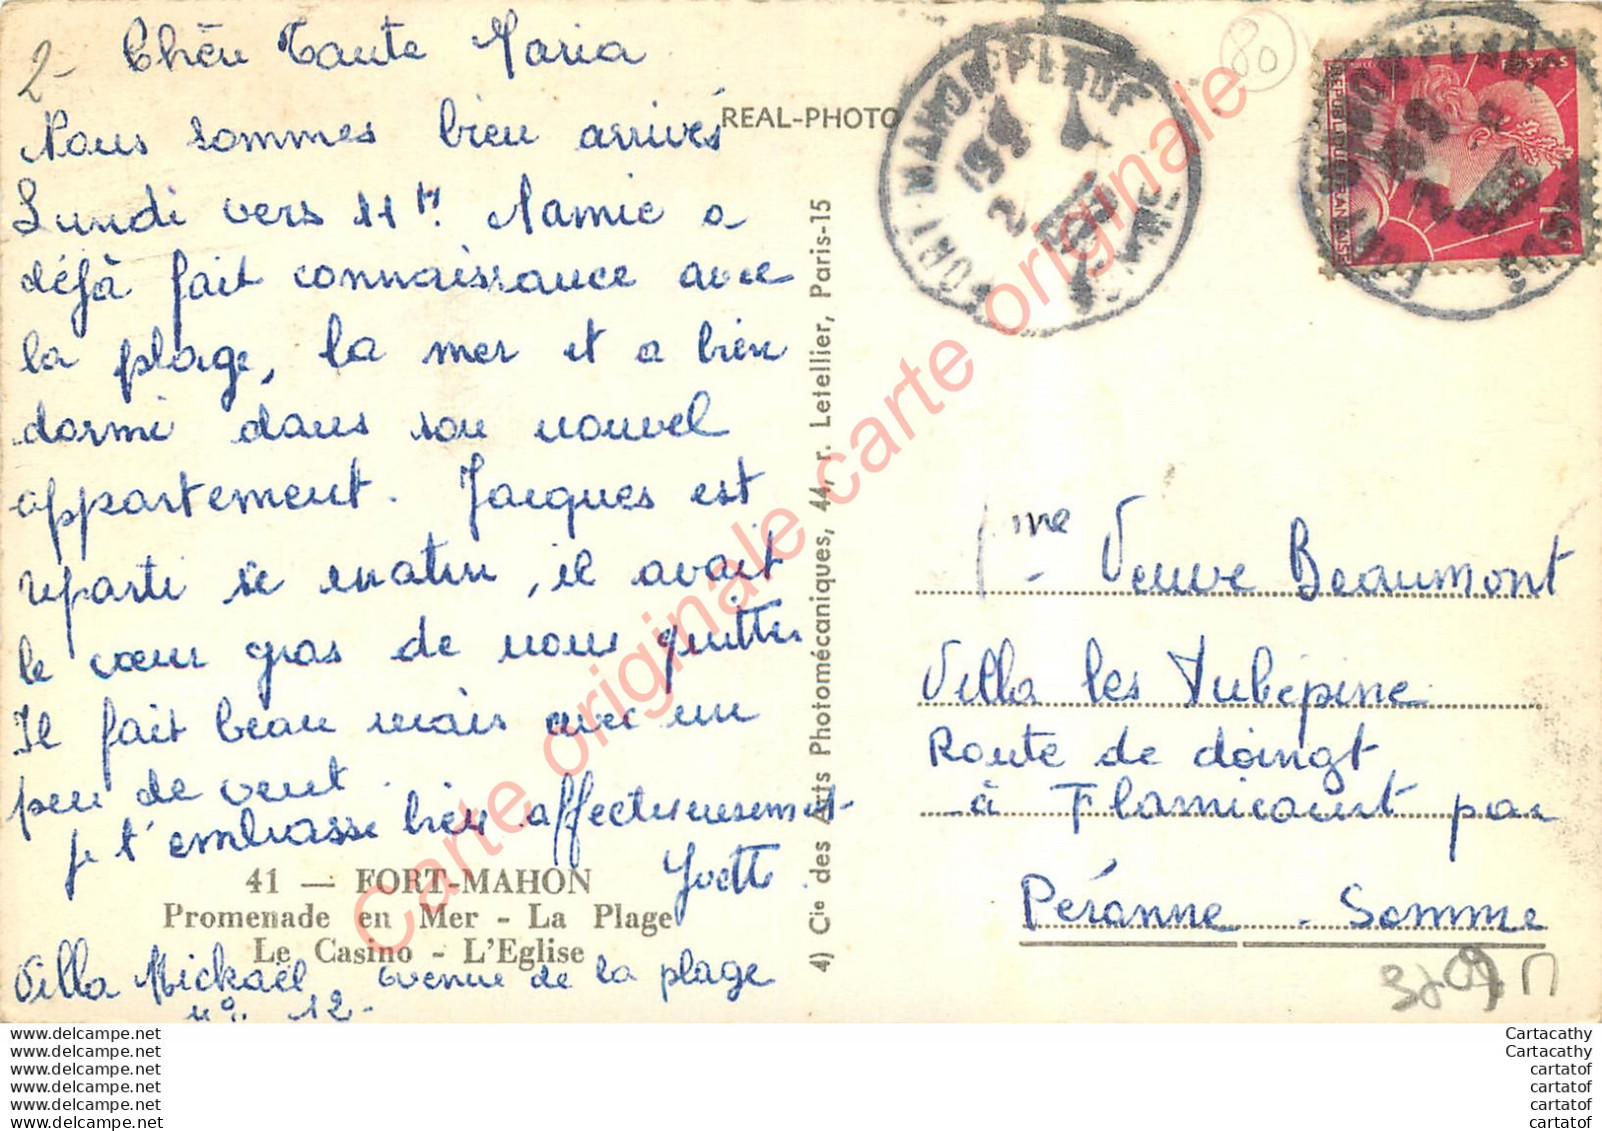 2-
Chère Tante Maria
Nous sommes bien arrivés
Lundi vers 11h. Namie a
déjà fait connaissance avec
la plage, la mer et a bien
dormi dans son nouvel
appartement. Jacques est
reparti ce matin, il avait
le cœur gros de nous quitter
Il fait beau mais avec un
peu de vent.
je t'embrasse bien affectueusement
Yvette
41 — FORT-MAHON
Promenade en Mer - La Plage
Le Casino - L'Eglise
Villa Mickaël avenue de la plage
n° 12-
REAL-PHOTO
4) Cie des Arts Photomécaniques, 44, r. Letellier, Paris-15
FORT-MAHON PLAGE
SOMME
80
POSTES
REPUBLIQUE FRANÇAISE
Mme Veuve Beaumont
Villa les Aubépine
Route de doingt
à Flamicourt par
Péronne - Somme
Carte originale carte originale carte originale
www.delcampe.net
www.delcampe.net
www.delcampe.net
www.delcampe.net
www.delcampe.net
www.delcampe.net
Cartacathy
Cartacathy
cartatof
cartatof
cartatof
cartatof